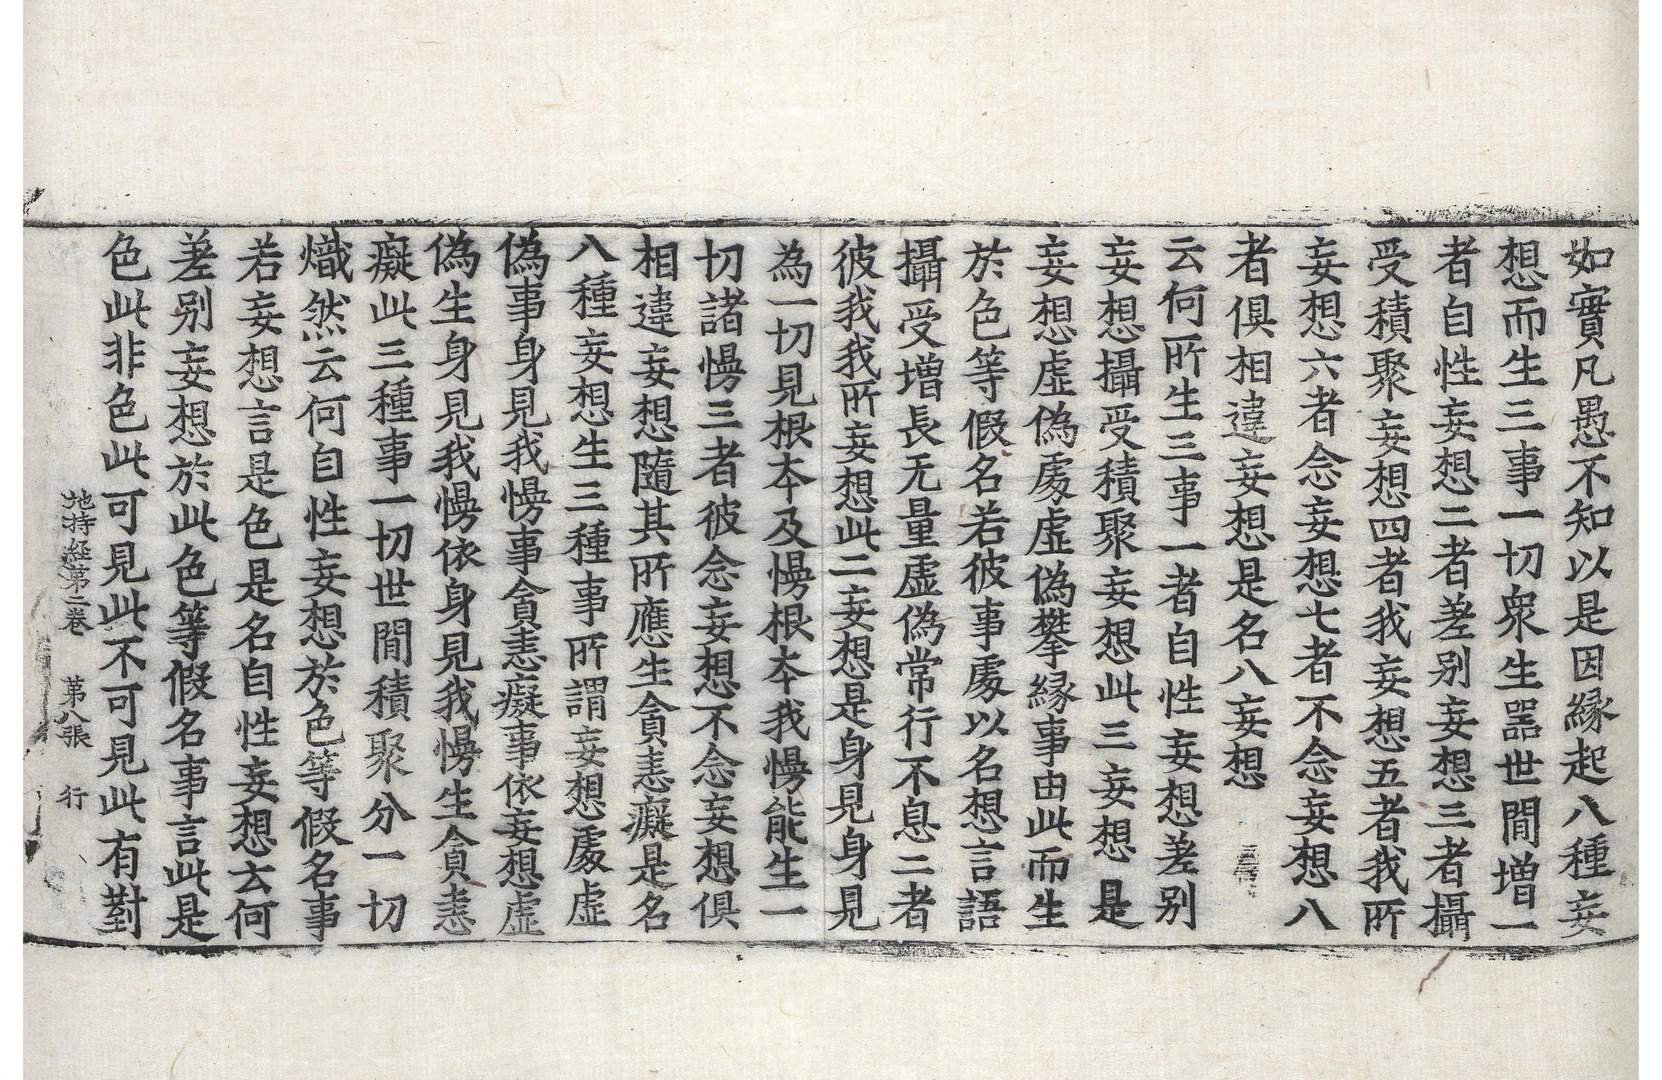 如實凡愚不知以是因縁起八種妄
想而生三事一切衆生器世間增一
者自性妄想二者差别妄想三者攝
受積聚妄想四者我妄想五者我所
妄想六者念妄想七者不念妄想八
者俱相違妄想是名八妄想
云何所生三事一者自性妄想差别
妄想攝受積聚妄想此三妄想是
妄想虛偽處虛偽攀縁事由此而生
於色等假名若彼事處以名想言語
攝受增長无量虛偽常行不息二者
彼我我所妄想此二妄想是身見身見
為一切見根本及慢根本我慢能生一
切諸慢三者彼念妄想不念妄想俱
相違妄想隨其所應生貪恚癡是名
八種妄想生三種事所謂妄想處虛
偽事身見我慢事貪恚癡事依妄想虛
偽生身見我慢依身見我慢生貪恚
癡此三種事一切世間積聚分一切
熾然云何自性妄想於色等假名事
若妄想言是色是名自性妄想云何
差别妄想於此色等假名事言此是
色此非色此可見此不可見此有對
地持経第二卷 第八張 行